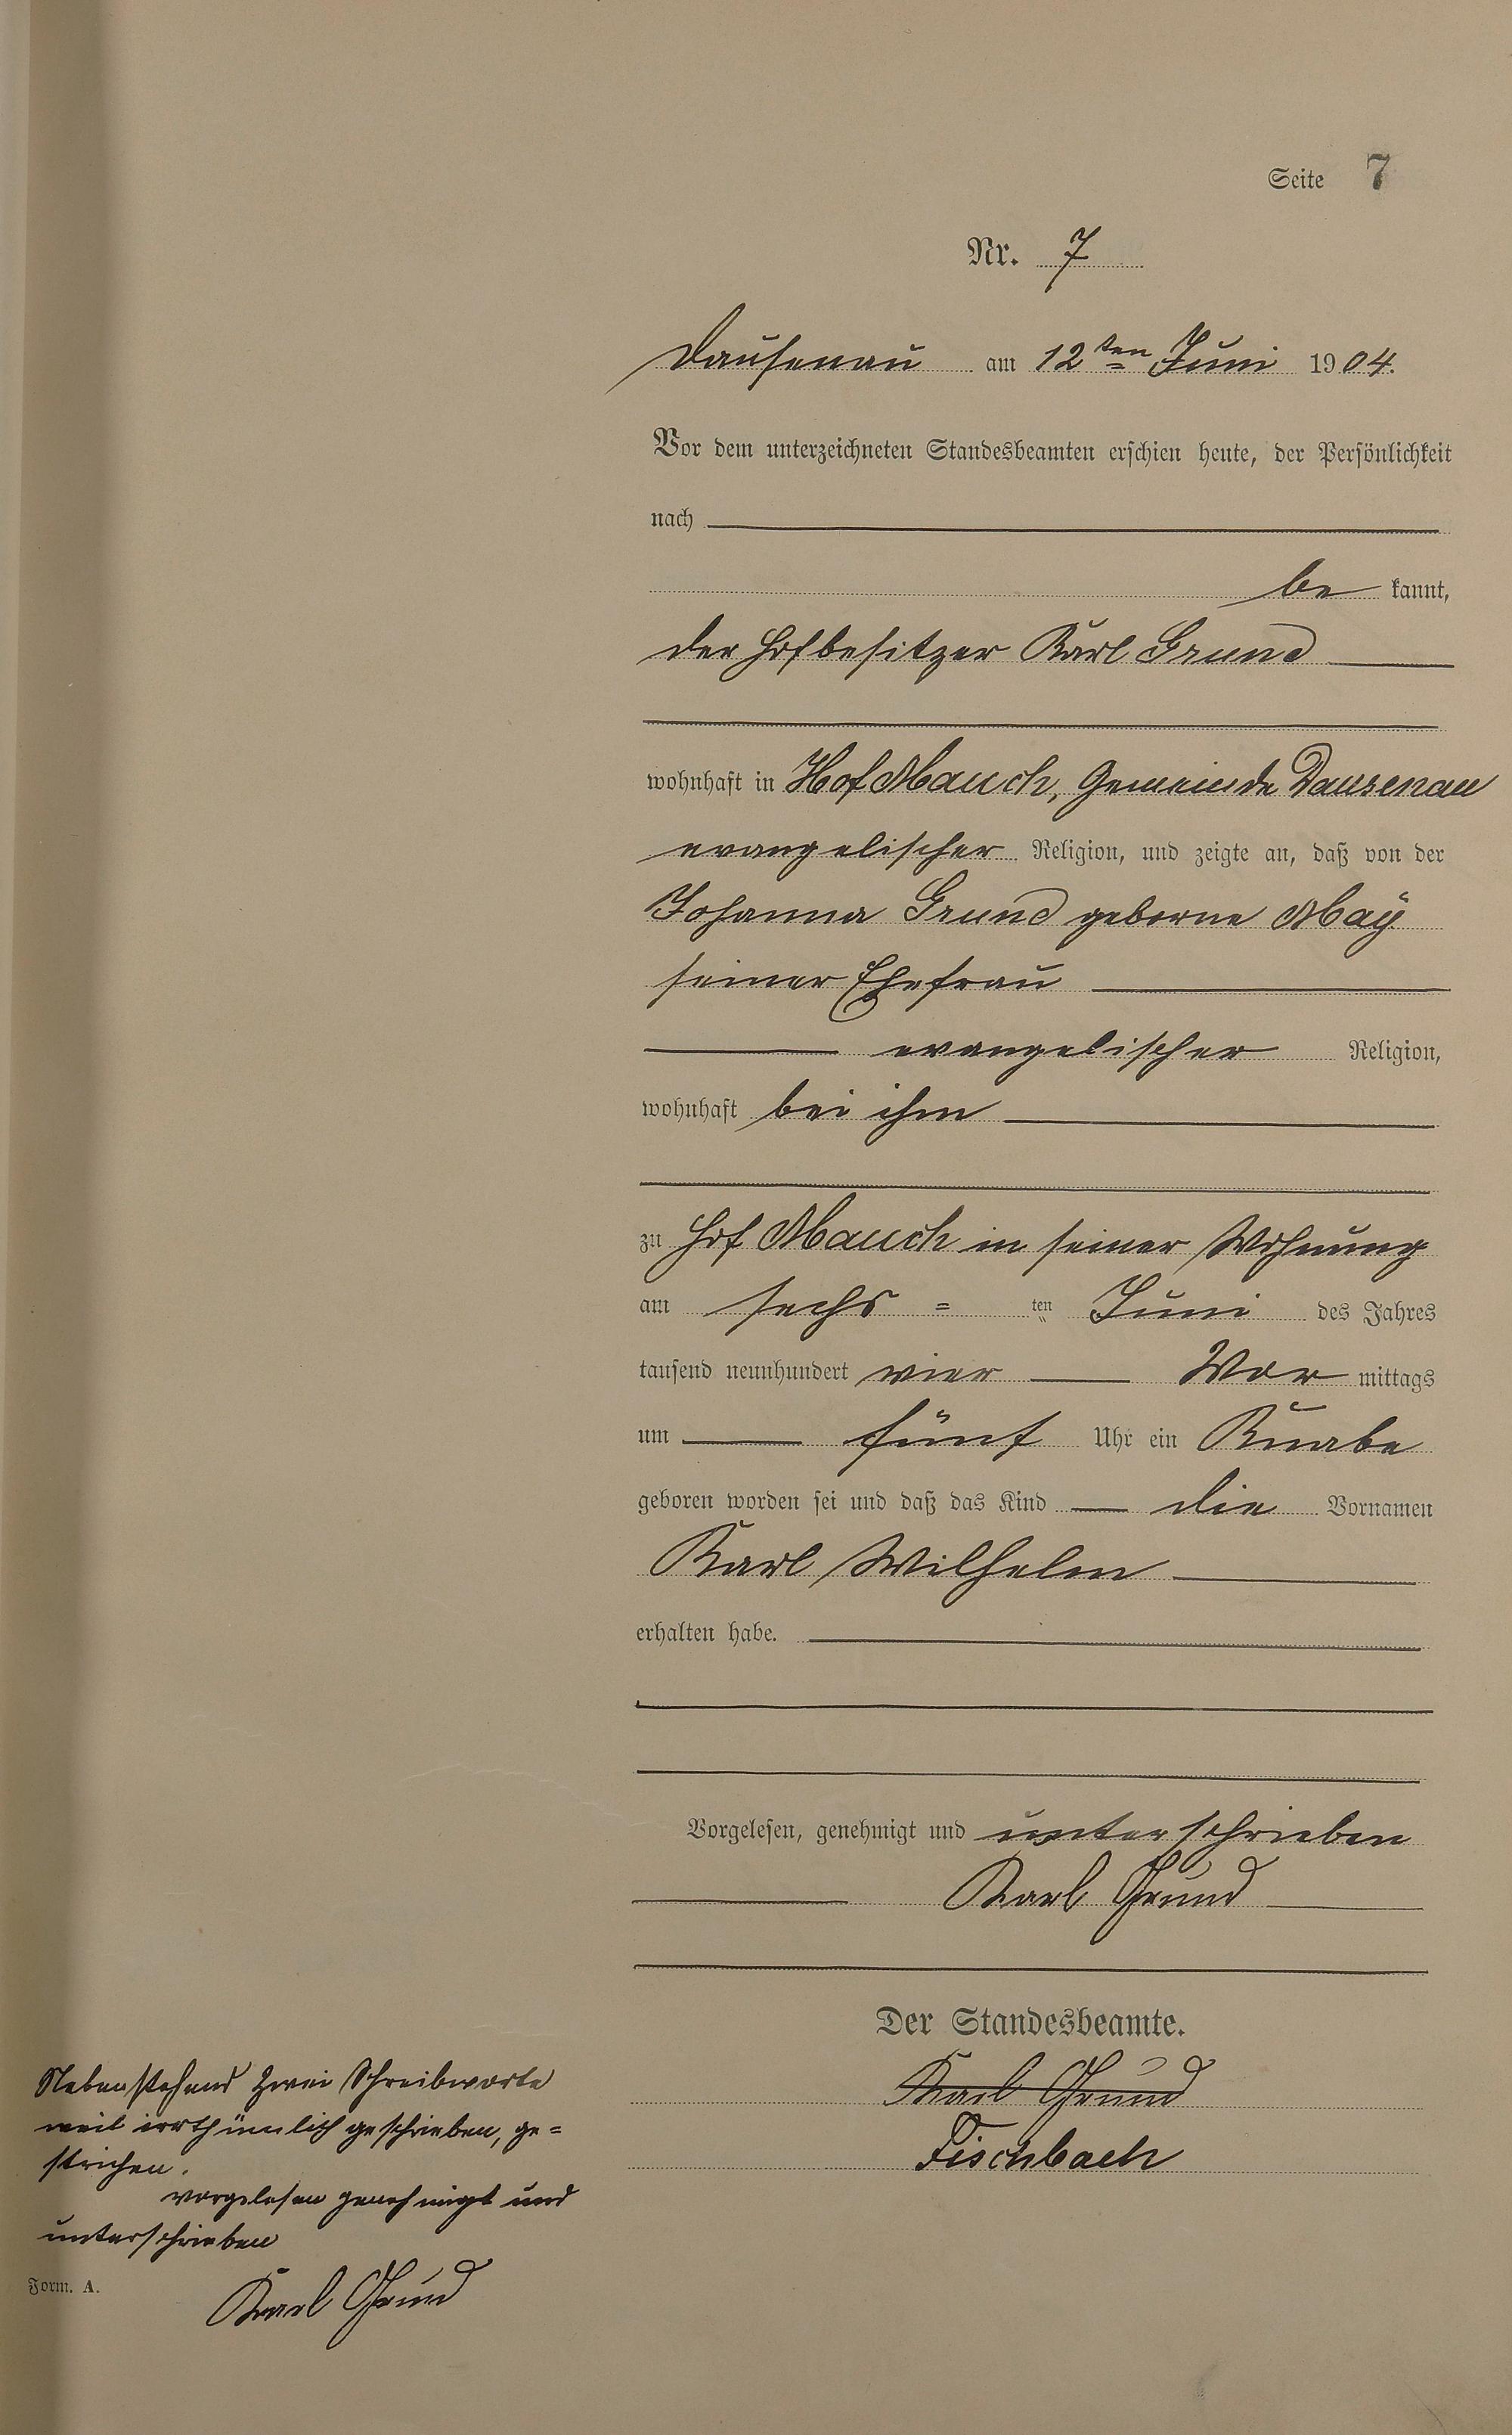 Seite 7
Nr. 7
Dausenau am 12ten Juni 1904.
Vor dem unterzeichneten Standesbeamten erschien heute, der Persönlichkeit
nach
be kannt,
der Hofbesitzer Karl Grund
wohnhaft in Hof Mauch, Gemeinde Dausenau
evangelischer Religion, und zeigte an, daß von der
Johanna Grund geborne Maÿ
seiner Ehefrau
evangelischer Religion,
wohnhaft bei ihm
zu Hof Mauch in seiner Wohnung
am sechs = ten Juni des Jahres
tausend neunhundert vier Vor mittags
um fünf Uhr ein Knabe
geboren worden sei und daß das Kind die Vornamen
Karl Wilhelm
erhalten habe.
Vorgelesen, genehmigt und unterschrieben
Karl Grund
Der Standesbeamte.
Karl Grund
Fischbach
Nebenstehend zwei Schreibworte
weil irrthümlich geschrieben, ge=
strichen.
vorgelesen genehmigt und
unterschrieben
Karl Grund
Form. A.